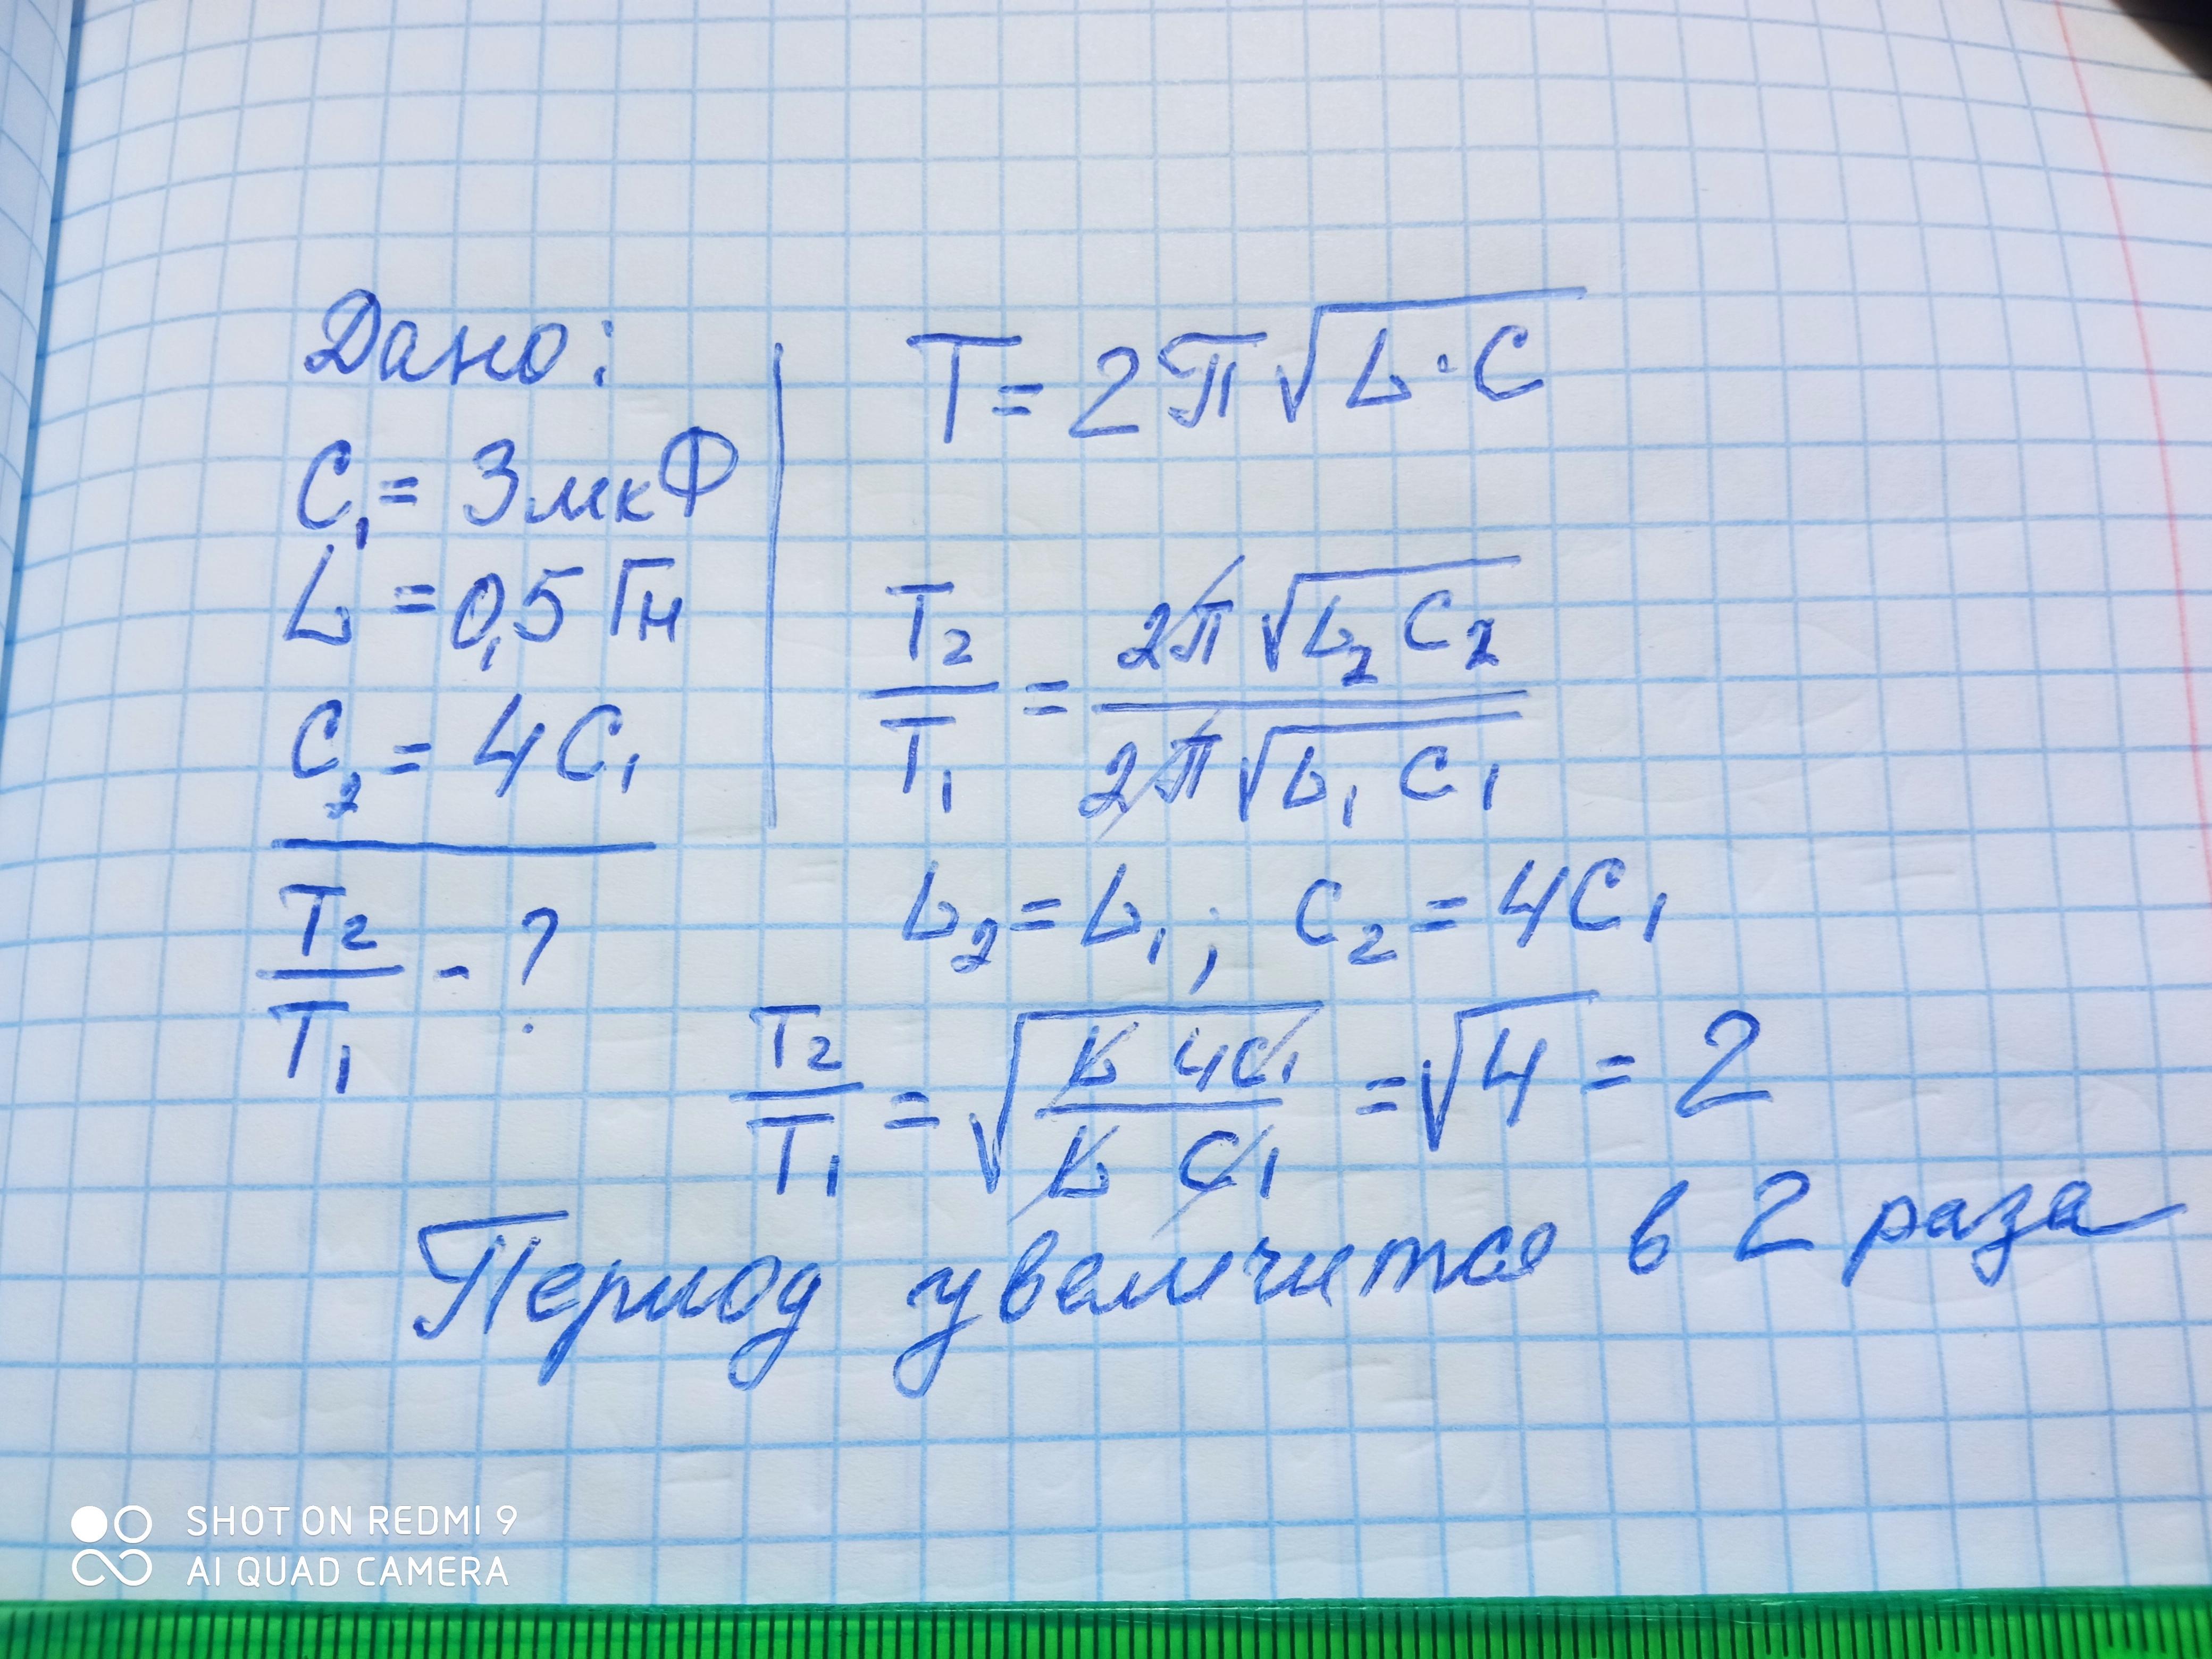 Дано:
C₁ = 3 мкФ
L = 0,5 Гн
C₂ = 4C₁
T₂/T₁ - ?
T = 2π√(L·C)
T₂/T₁ = 2π√(L₂C₂) / 2π√(L₁C₁)
L₂ = L₁; C₂ = 4C₁
T₂/T₁ = √(L 4C₁ / L C₁) = √4 = 2
Период увеличится в 2 раза
SHOT ON REDMI 9
AI QUAD CAMERA